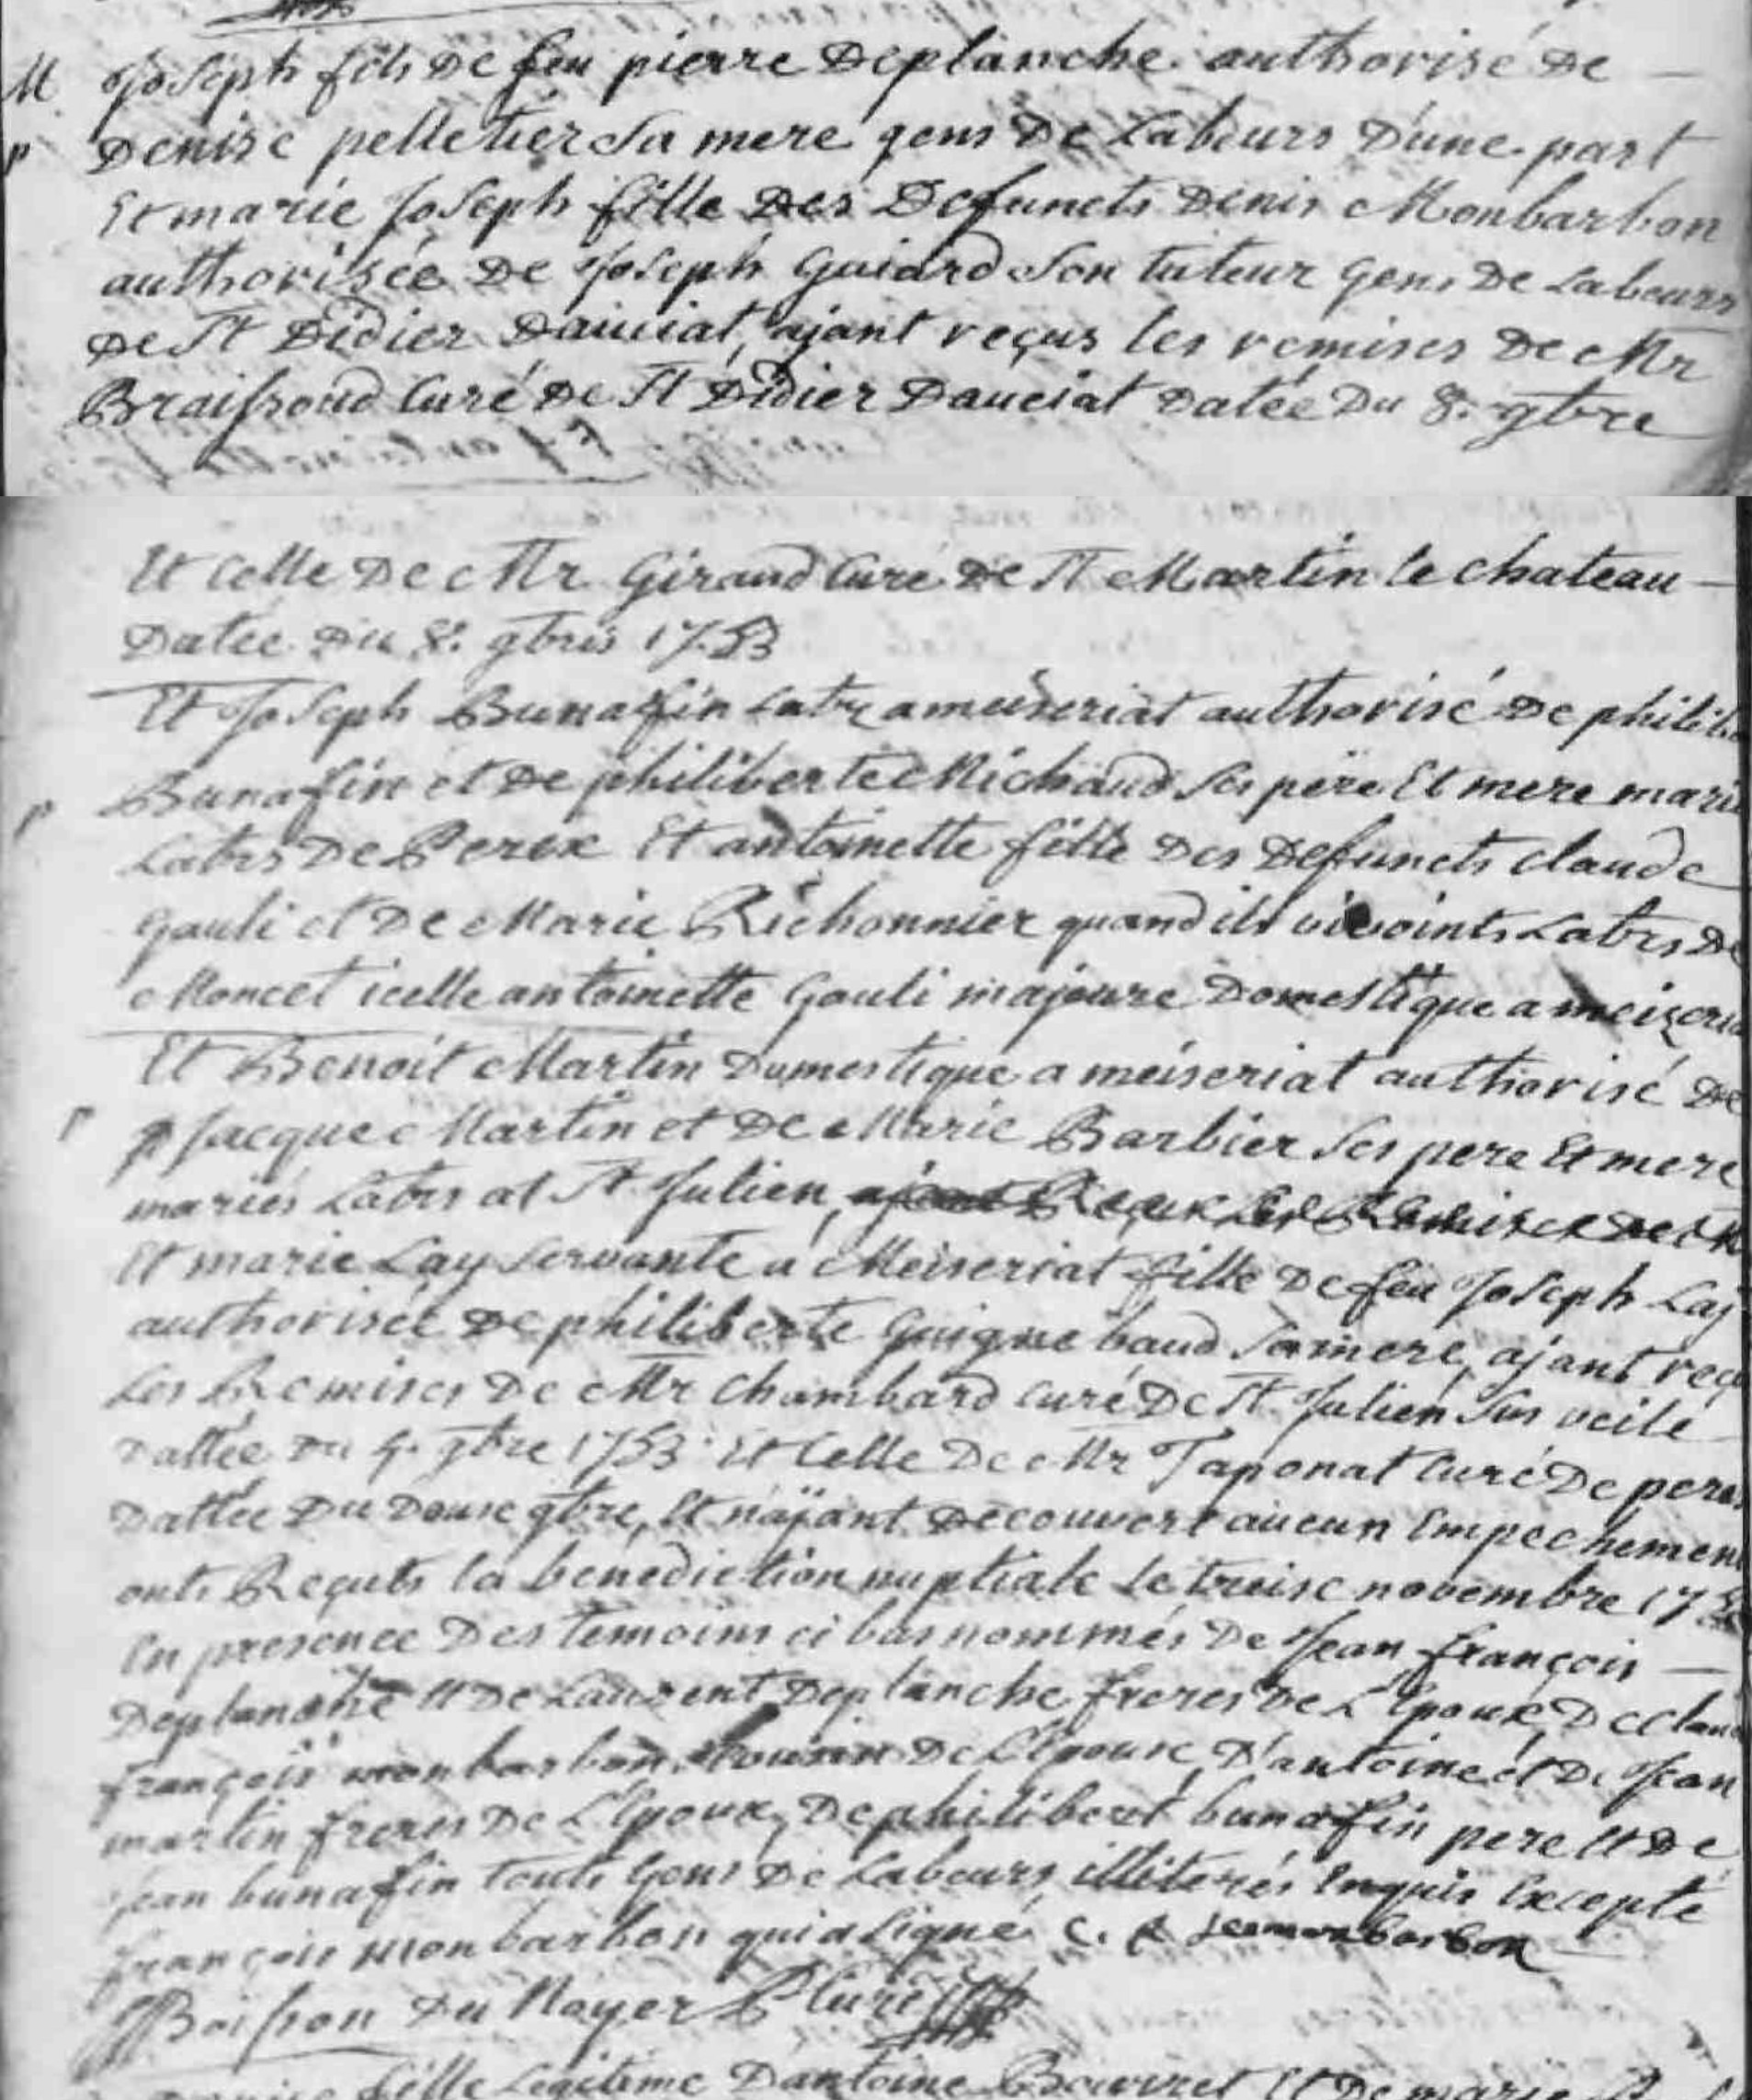 M Joseph fils De feu pierre Deplanche authorisé De
p Denise pelletier Sa mere gens De Labeurs D'une part
Et marie Joseph fille Des Defuncts Denis Monbarbon
authorisée De Joseph Guiard Son tuteur Gens De Labeurs
De St Didier Dauciat, ajant reçus les remises De Mr
Braissoud Curé De St Didier Dauciat Datée Du 8. 9bre
Et Celle De Mr Giraud Curé De St Martin le chateau
Datée Du 8. 9bris 1753
Et Joseph Bunafin Labr a meiseriat authorisé De philib
Bunafin et De philiberte Michaud Ses père Et mere marie
p Labrs De Perex Et antoinette fille Des Defuncts claude
Gauli et De Marie Richonnier quand ils vivoints Labrs De
Moncet icelle antoinette Gauli majeure Domestique a meizeria
Et Benoit Martin Domestique a meiseriat authorisé De
p Jacque Martin et De Marie Barbier Ses pere Et mere
mariés Labrs at St Julien, ajant Reçux Les Remises De
Et marie Lay Servante a Meiseriat fille De feu Joseph Lay
authorisée De philiberte Guigne baud Sa mere, ajant reçu
Les Remises De Mr Chambard Curé De St Julien Sus veile
Dattée Du 9. 9bre 1753 Et Celle De Mr Taponat Curé De perex
Dattée Du Douse 9bre, Et n'ajant Decouvert aucun Empechement
onts Reçuts la bénédiction nuptiale Le treise novembre 175
En presence Des temoins ci bas nommés De Jean françois
Deplanche Et De Laurent Deplanche freres De L'Epoux, De clau
françois monbarbon Cousin De L'Epouse, D'antoine et De Jean
martin freres De L'Epoux, De philibert bunafin pere Et De
Jean bunafin touts Gens De Labeurs, illiterés Enquis Excepté
françois monbarbon qui a Signé C. f monbarbon
Boisson Du Noyer Curé
fille Legitime D'antoine Et De marie